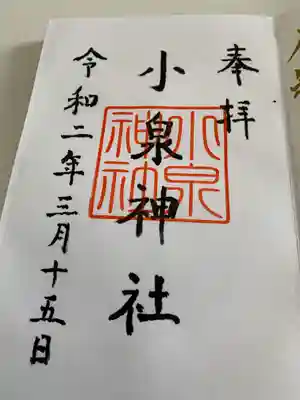 奉拝
小泉神社
小泉神社
令和二年三月十五日